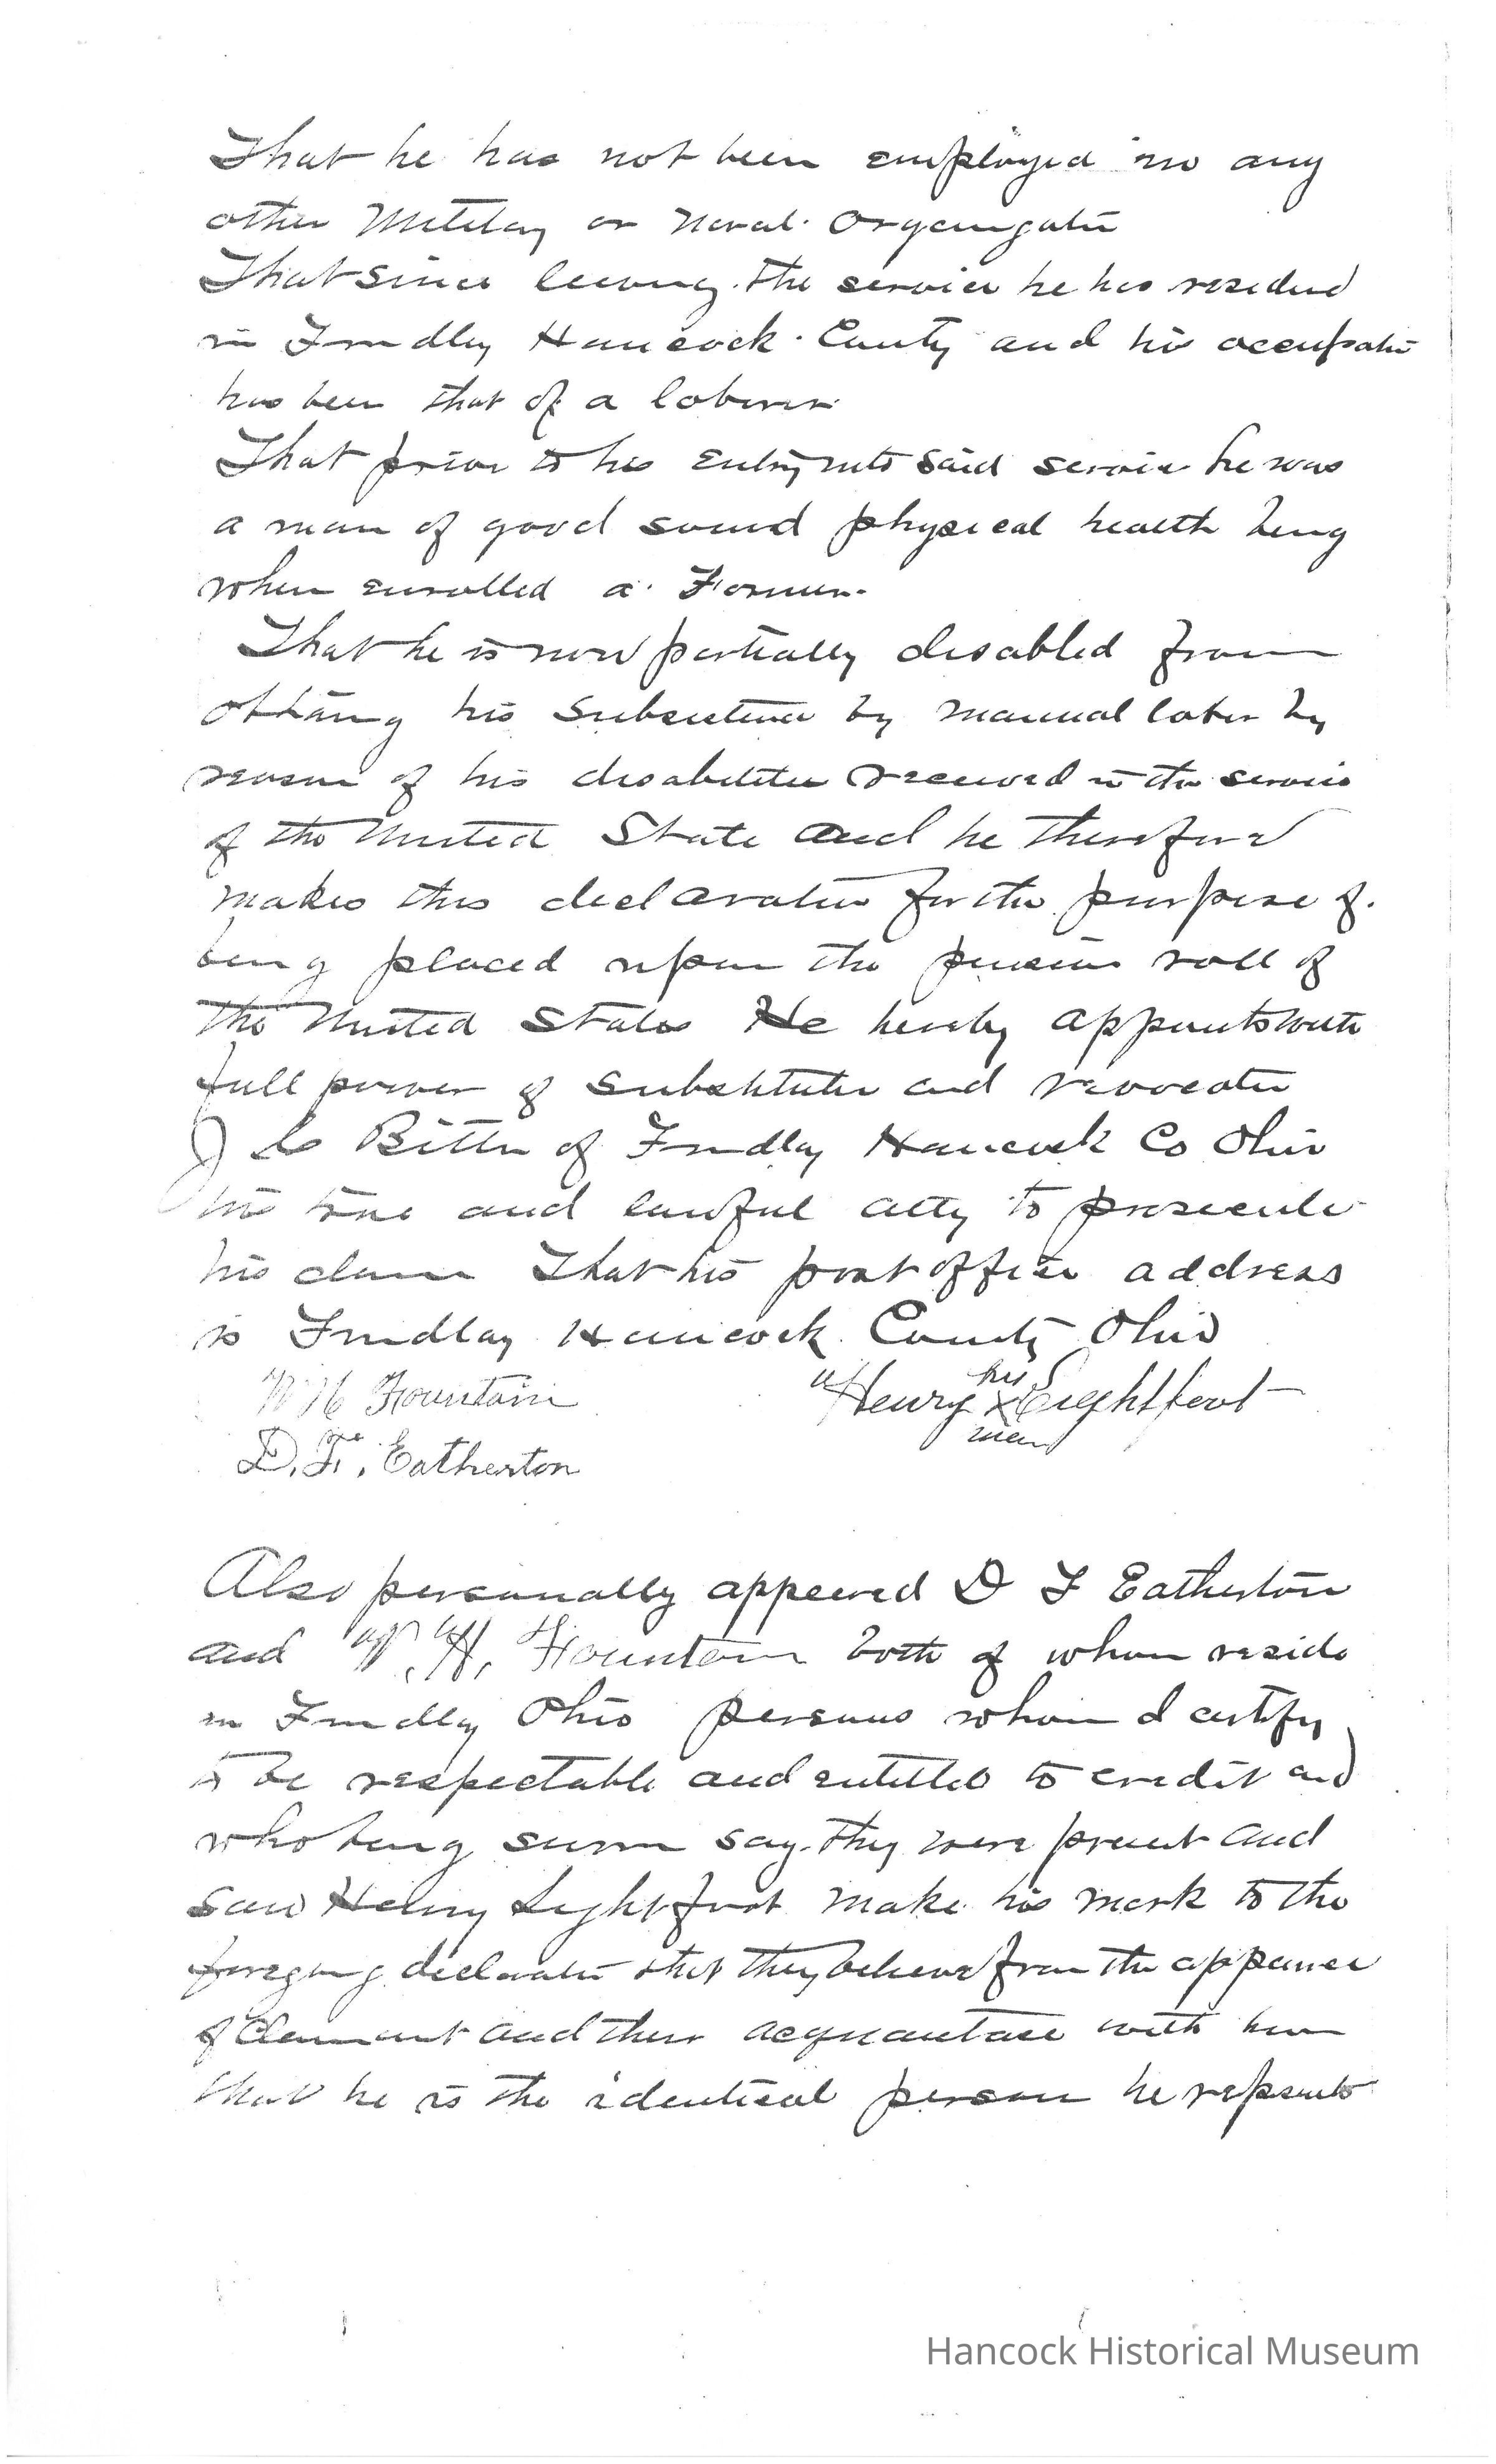 That he has not been employed in any
other Military or Naval Organization
That since leaving the service he has resided
in Findlay Hancock County and his occupation
has been that of a laborer
That prior to his entry into said service he was
a man of good sound physical health being
when enrolled a Farmer.
That he is now partially disabled from
obtaing his subsistence by manual labor by
reason of his disabilities received in the service
of the United State and he therefore
makes this declaration for the purpose of.
being placed upon the pension roll of
the United States He hereby appoints with
full power of substitution and revocation
of Findlay Hancock Co Ohio
his true and lawful atty to prosecute
his claim That his post office address
is Findlay Hancock County Ohio
W H Fountain
his
Henry X Lightfoot
mark
D. F. Eatherton
Also personally appeared D F Eatherton
and W. H. Fountain both of whom reside
in Findlay Ohio persons whom I certify
to be respectable and entitled to credit and
who being sworn say they were present and
saw Henry Lightfoot make his mark to the
foregoing declaration that they believe from the appearance
of Claimant and their acquaintance with him
that he is the identical person he represents
Hancock Historical Museum